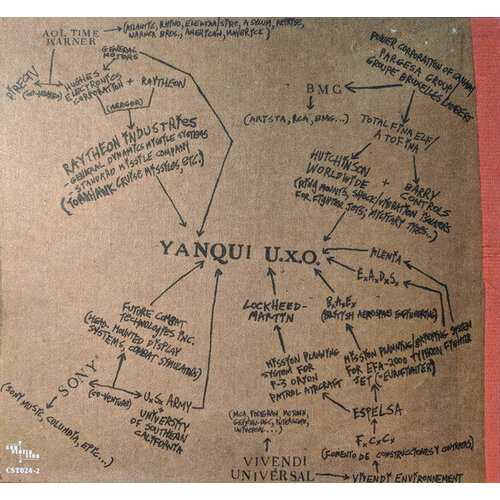 AOL TIME
WARNER
(ATLANTIC, RHINO, ELEKTRA, SIRE, ASYLUM, REPRISE,
WARNER BROS., AMERICAN, MAVERICK)
GENERAL
MOTORS
DIRECTV
(CO-VENTURE)
HUGHES
ELECTRONICS
CORPORATION + RAYTHEON
(MERGER)
RAYTHEON INDUSTRIES
- GENERAL DYNAMICS MISSILE SYSTEMS
- STANDARD MISSILE COMPANY
(TOMAHAWK CRUISE MISSILES, ETC.)
POWER CORPORATION OF CANADA
PARGESA GROUP/
GROUPE BRUXELLES LAMBERT
BMG
(ARISTA, RCA, BMG...)
TOTALFINAELF/
ATOFINA
HUTCHINSON
WORLDWIDE
+ BARRY
CONTROLS
FOR FIGHTER JETS, MILITARY TIRES..)
YANQUI U.X.O.
ALENIA
E.A.D.S.
FUTURE COMBAT
TECHNOLOGIES INC.
(HEAD-MOUNTED DISPLAY
SYSTEMS, COMBAT SIMULATORS)
LOCKHEED-
MARTIN
B.A.E.
(BRITISH AEROSPACE ENGINEERING)
MISSION PLANNING
SYSTEM FOR
P-3 ORION
PATROL AIRCRAFT
MISSION PLANNING/
FOR EFA-2000
JET ("EUROFIGHTER")
SYSTEM
TYPHOON FIGHTER
SONY
(SONY MUSIC, COLUMBIA, EPIC...)
(CO-VENTURE)
U.S. ARMY
+
UNIVERSITY
OF SOUTHERN
CALIFORNIA
(MCA, POLYGRAM, MOTOWN,
GEFFEN-DGC, INTERSCOPE,
UNIVERSAL...)
ESPELSA
F.C.C.
(FOMENTO DE CONSTRUCCIONES Y CONTRATAS)
VIVENDI
UNIVERSAL
VIVENDI ENVIRONNEMENT
constellation
CST024-2